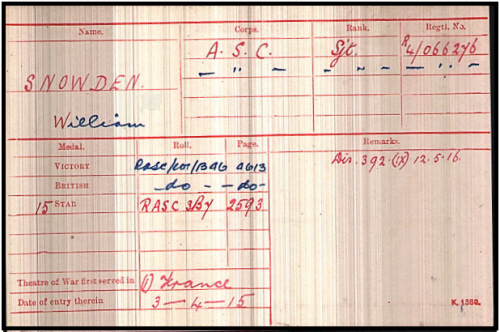 Name. Corps. Rank. Regtl. No.
A. S. C. Sjt. R4/066276
— " — - " - — " —
SNOWDEN.
William
Medal. Roll. Page. Remarks.
VICTORY RASC/101/BA6 4613 Dis. 392.(IX) 12.5.16.
BRITISH — do — — do —
15 STAR RASC 3By 2593
Theatre of War first served in (1) France
Date of entry therein 3 — 4 — 15
K. 1380.